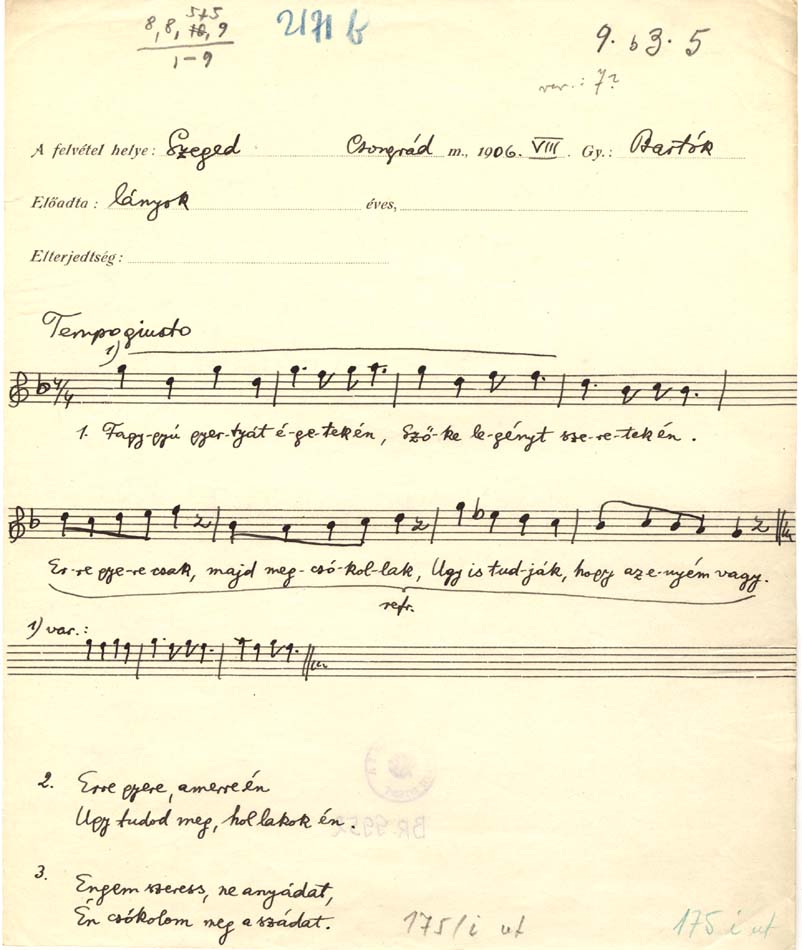 8, 8, 5+5 10, 9
1-9
2171 b
9. b3. 5
var.: 7?
A felvétel helye: Szeged Csongrád m., 1906. VIII. Gy.: Bartók
Előadta: lányok éves,
Elterjedtség:
Tempo giusto
1)
4/4
1. Fagy-gyú gyer-tyát é-ge-tek én, Sző-ke le-gényt sze-re-tek én.
Er-re gye-re csak, majd meg-csó-kol-lak, Ugy is tud-ják, hogy az e-nyém vagy.
refr.
1) var.:
2. Erre gyere, amerre én
Ugy tudod meg, hol lakok én.
3. Engem szeress, ne anyádat,
Én csókolom meg a szádat.
175/i ut
175 i ut